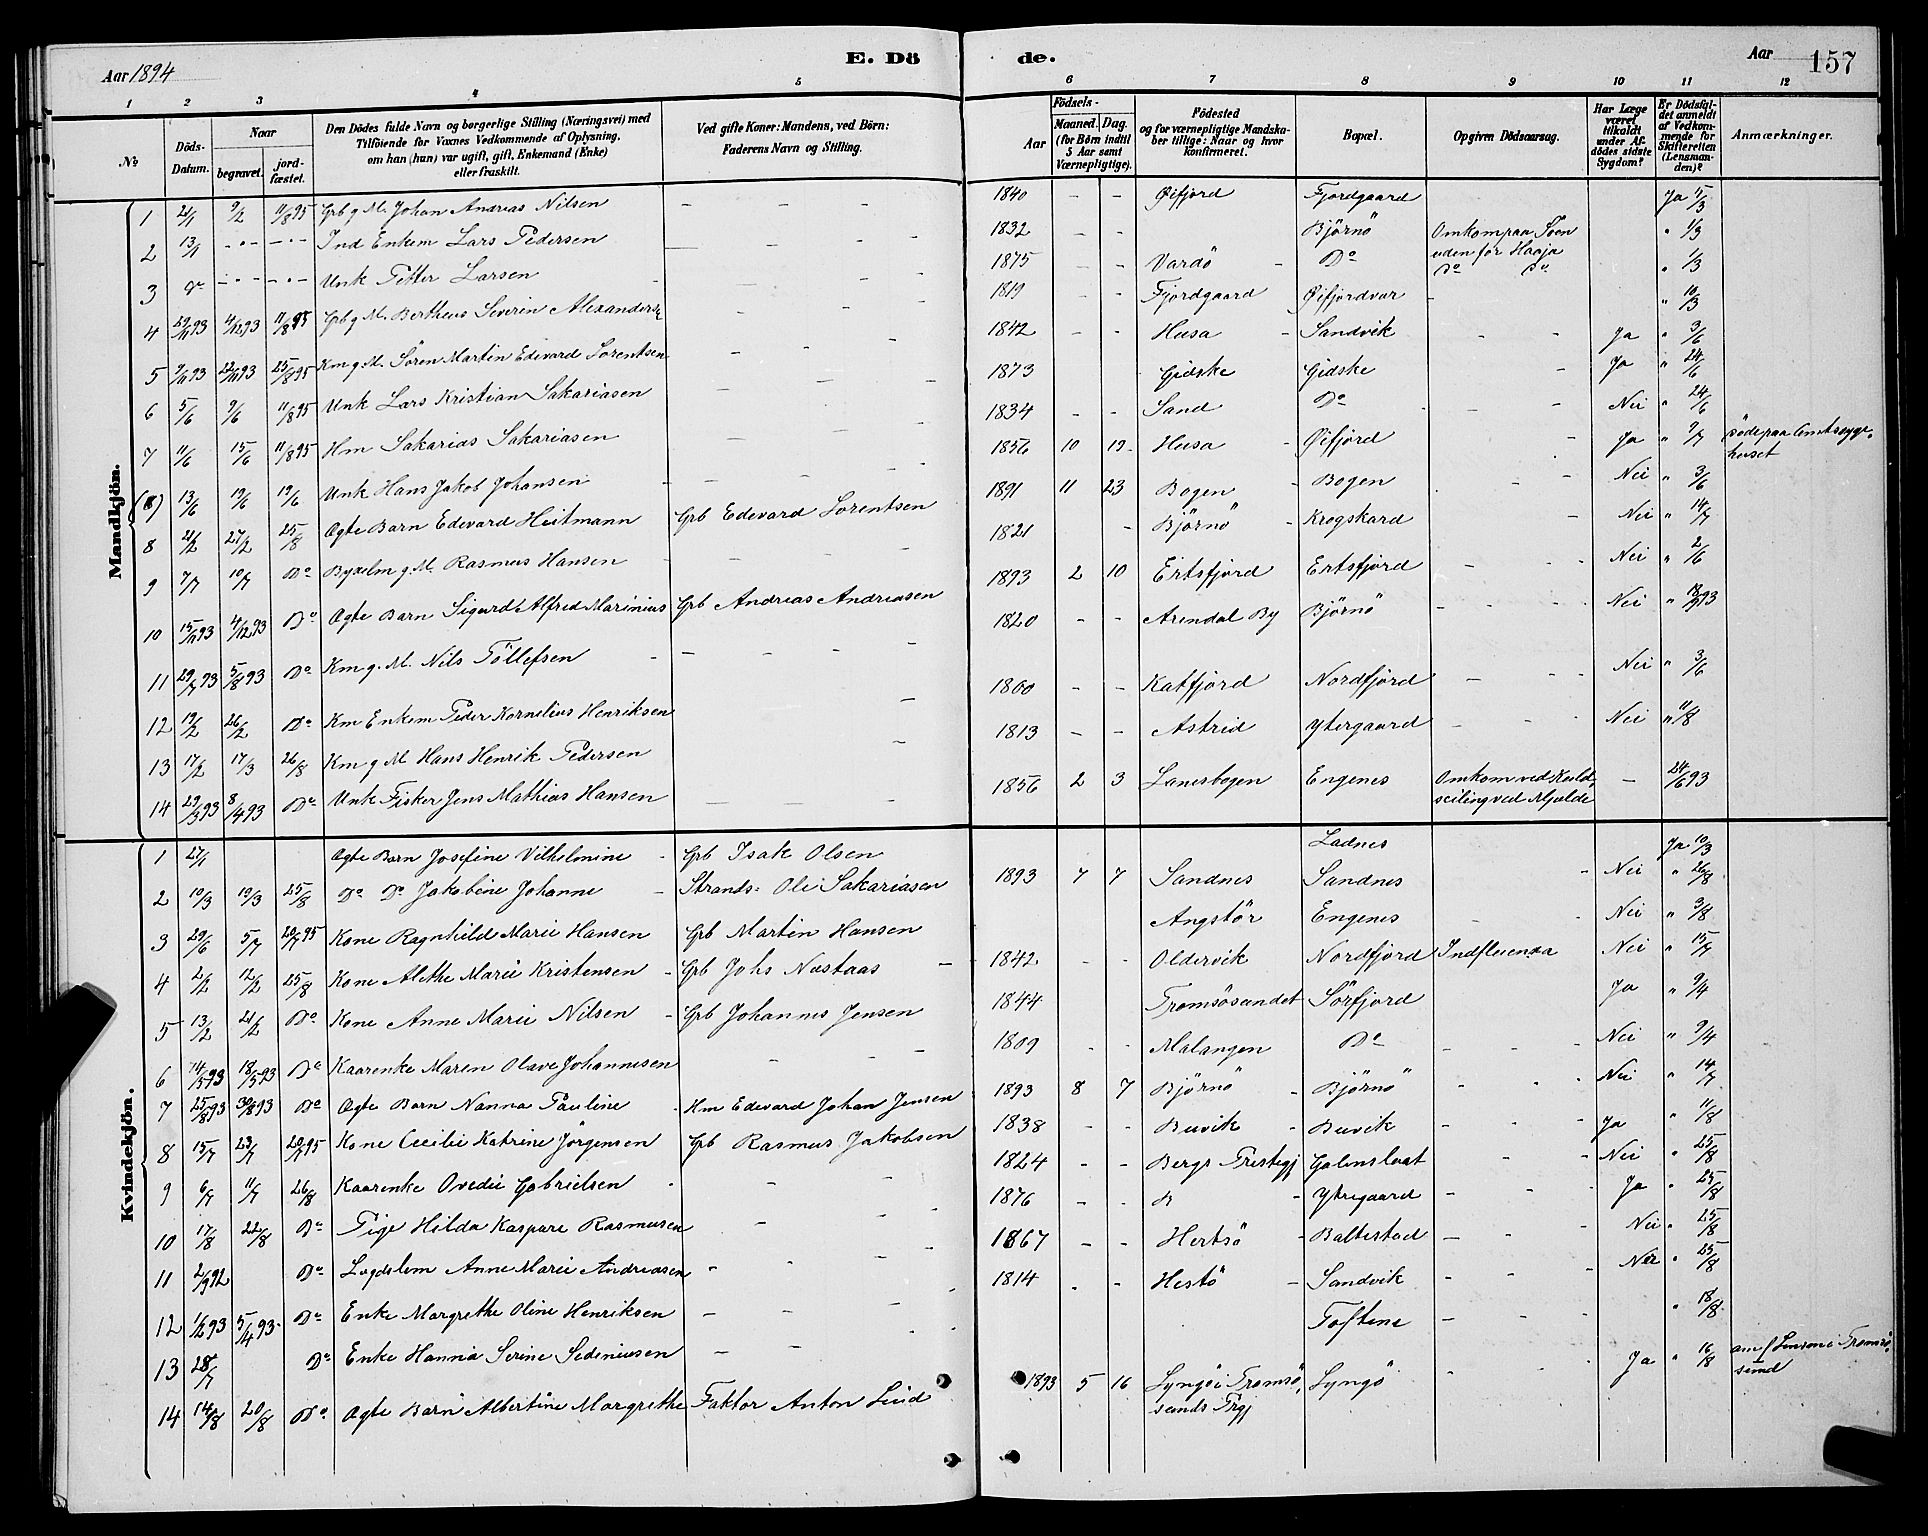 Aar 1894
E. Dö
de.
Aar 157
1 2 3 4 5 6 7 8 9 10 11 12
No
Döds-Datum.
Naar
begravet.
jord-fæstet.
Den Dödes fulde Navn og borgerlige Stilling (Næringsvei) med
Tilföiende for Voxnes Vedkommende af Oplysning,
om han (hun) var ugift, gift, Enkemand (Enke)
eller fraskilt.
Ved gifte Koner: Mandens, ved Börn:
Faderens Navn og Stilling.
Födsels-
Aar Maaned. Dag.
(for Børn indtil
5 Aar samt
Værnepligtige).
Födested
og for værnepligtige Mandska-
ber tillige: Naar og hvor
konfirmeret.
Bopæl.
Opgiven Dödsaarsag.
Har Læge
været
tilkaldt
under Af-
dödes sidste
Sygdom?
Er Dödsfal-
det anmeldt
af Vedkom-
mende for
Skifteretten
(Lensman-
den)?
Anmærkninger.
Mandkjön.
1 2/1 9/2 11/8 95 Grb g M. Johan Andreas Nilsen - - - 1840 - - Øifjord Fjordgaard Ja 15/3
2 13/1 -"- -"- Ind Enkem Lars Pedersen - - - 1832 - - Björnö Omkom paa Søen uden for Haaja " 1/3
3 do -"- -"- Unk Petter Larsen - - 1875 - - Vardö - Do Do Do " 1/3
4 29/11 93 4/12 93 11/8 95 Grb g. M. Bertheus Severin Alexanders - - 1819 - - Fjordgaard Øifjordvar - " 10/3
5 9/11 93 22/11 93 25/8 95 Km g. M. Sören Martin Edevard Sorentsen - - 1842 - - Husa - Sandvik - - Ja " 3/6
6 5/6 9/6 11/8 95 Unk Lars Kristian Sakariasen - - 1873 Gidske Gidske - Ja " 24/6
7 11/6 15/6 11/8 95 Hm Sakarias Sakariasen - - 1834 - - Sand Do - - Nei " 24/6
(8) 13/6 19/6 19/6 Unk Hans Jakob Johansen - - 1856 10 19 Husa - Øifjord - Ja " 9/7 döde paa Amtssyge-
huset
8 21/2 27/2 25/8 Ægte Barn Edevard Heitmann Grb Edevard Lorentsen 1891 11 23 Bogen - Bogen - - Nei " 3/6
9 7/7 10/7 Do Byxelm g. M. Rasmus Hansen - - 1821 - Björnö - Krogskard - Nei " 14/7
10 15/11 93 4/12 93 Do Ægte Barn Sigurd Alfred Marinius Grb Andreas Andreasen 1893 2 10 Ertsfjord Ertsfjord - - Nei " 2/6
11 29/7 93 5/8 93 Do Km g. M. Nils Töllefsen - - - 1820 - - Arendal By Björnö - - Nei
12 19/2 26/2 Do Km Enkem Peder Kornelius Henriksen - 1860 - - Katfjord Nordfjord - - Nei " 3/6
13 17/2 17/3 26/8 Km g M Hans Henrik Pedersen - 1813 - - Astrid Ytergaard - - Nei " 11/8
14 29/3 93 8/4 93 Do Unk Fisker Jens Mathias Hansen - - 1856 2 3 Lanesbogen Engenes Omkom ved Kuld-
seiling ved Mjelde - 24/6 93
Kvindekjön.
1 27/1 Ægte Barn Josefine Vilhelmine - Grb Isak Olsen Ladnes Ja 10/3
2 10/3 19/3 25/8 Do Do Jakobine Johanne - Strands: Ole Sakariasen 1893 7 7 Sandnes Sandnes - Nei " 26/8
3 29/6 5/7 20/7 95 Kone Ragnhild Marie Hansen Grb Martin Hansen Angstör Engenes - - Nei " 3/8
4 2/2 12/2 25/8 Kone Alethe Marie Kristensen - Grb Johs Næstaas - 1842 - - Oldervik Nordfjord Indfluensa Nei " 15/7
5 13/2 21/2 Do Kone Anne Marie Nilsen - Grb Johannes Jensen 1844 Tromsösundet Sörfjord Ja " 9/4
6 14/5 93 18/5 93 Do Kaarenke Maren Olave Johannesen - - - 1809 - - Malangen Do - - Nei " 9/4
7 25/8 93 30/8 93 Do Ægte Barn Nanna Pauline - Hm Edevard Johan Jensen 1893 8 7 Björnö - Björnö - - Nei " 14/7
8 15/7 23/7 20/7 95 Kone Cecilie Katrine Jörgensen Grb Rasmus Jakobsen 1838 - - Buvik - Buvik - - Ja " 11/8
9 6/7 11/7 26/8 Kaarenke Ovedie Gabrielsen - - - 1824 - - Bergs Prestegj Galenslaat - - Nei " 25/8
10 17/8 22/8 Do Pige Hilda Kaspare Rasmusen - - 1876 - - - Ytregaard - - Ja " 25/8
11 2/9 92 Do Logdslem Anne Marie Andreasen - - - 1867 - - Hertsö - Baltestad - - Nei " 25/8
12 1/12 93 5/4 93 Do Enke Margrethe Oline Henriksen - - - 1814 - - Hestö - Sandvik - - Nei " 25/8
13 28/7 Do Enke Hanna Serine Sedeniusen - - - Toftene - - " 18/8
14 14/8 20/8 Do Ægte Barn Albertine Margrethe Faktor Anton Lind 1893 5 16 Lyngö i Tromsö-
sunds Prgj Lyngö - - Ja " 16/8 anm f Lensm i Tromsö-
sund